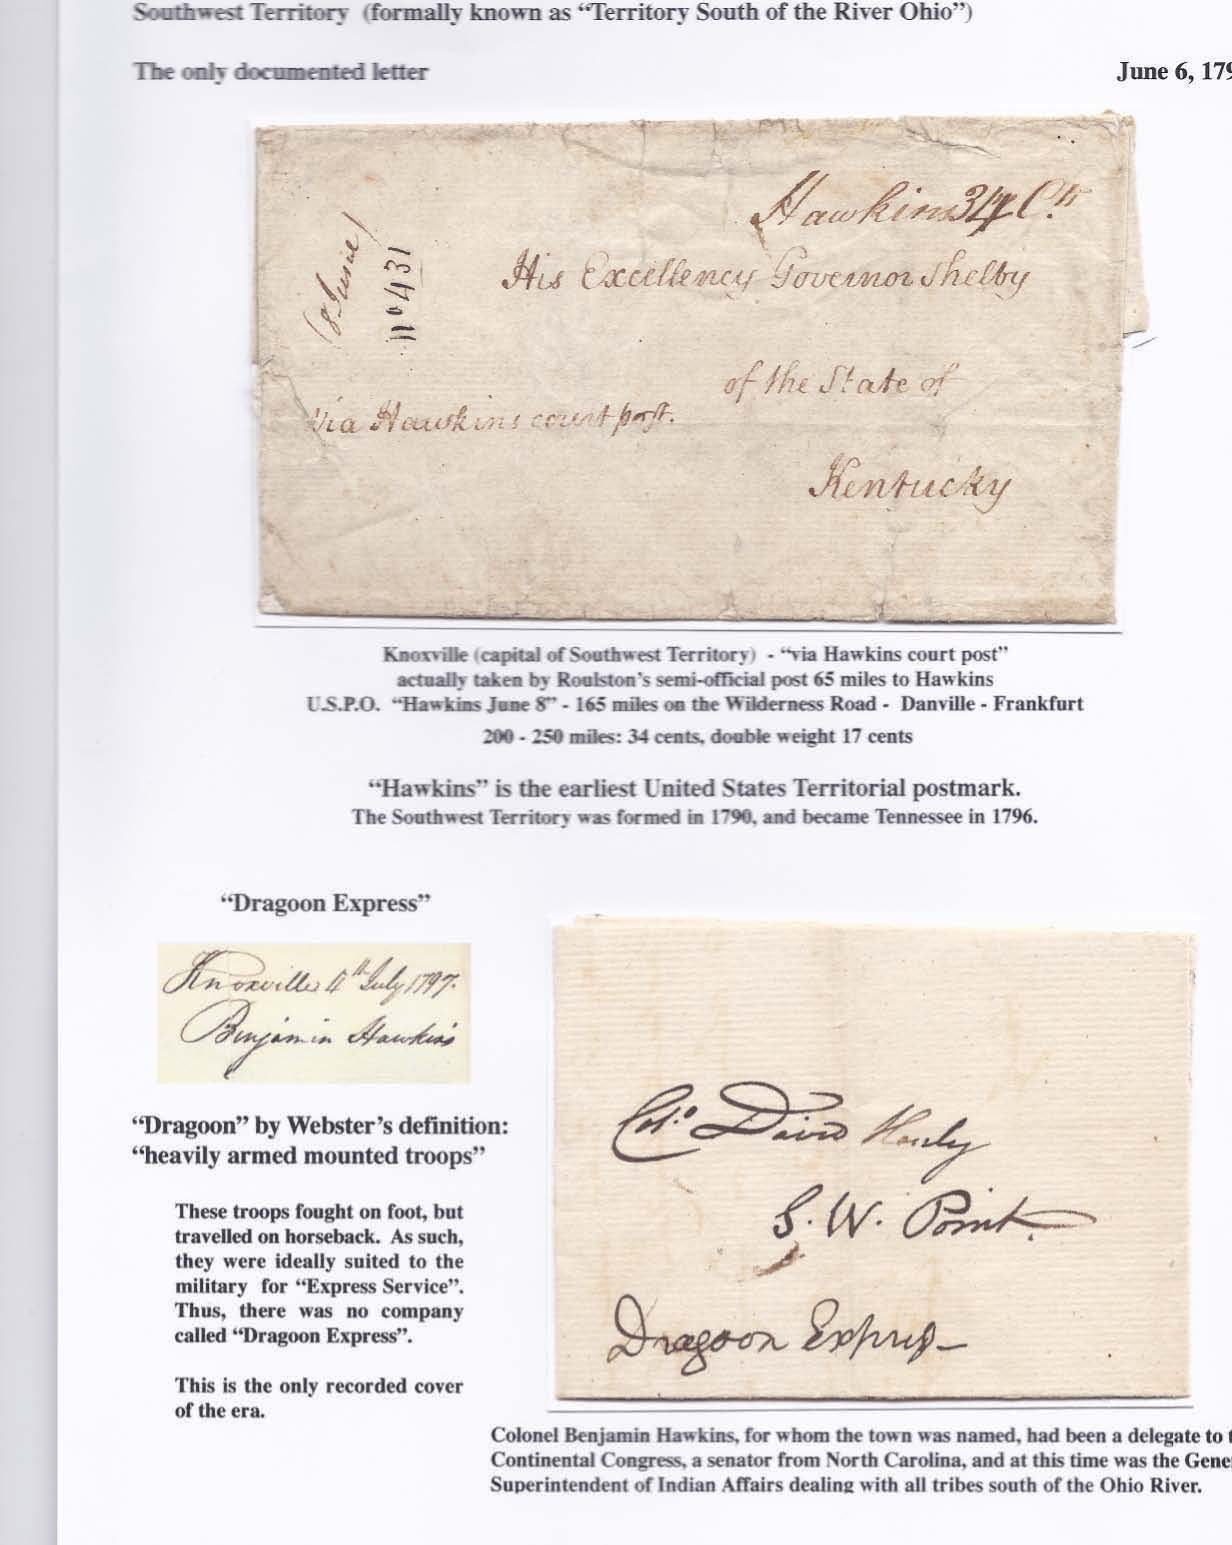 Southwest Territory (formally known as “Territory South of the River Ohio”)
The only documented letter
June 6, 179
Hawkins 34 Cts
(8 June)
no 431
His Excellency Governor Shelby
of the State of
via Hawkins court post.
Kentucky
Knoxville (capital of Southwest Territory) - “via Hawkins court post”
actually taken by Roulston’s semi-official post 65 miles to Hawkins
U.S.P.O. “Hawkins June 8” - 165 miles on the Wilderness Road - Danville - Frankfurt
200 - 250 miles: 34 cents, double weight 17 cents
“Hawkins” is the earliest United States Territorial postmark.
The Southwest Territory was formed in 1790, and became Tennessee in 1796.
“Dragoon Express”
Knoxville 4th July 1797.
Benjamin Hawkins
“Dragoon” by Webster’s definition:
“heavily armed mounted troops”
These troops fought on foot, but
travelled on horseback. As such,
they were ideally suited to the
military for “Express Service”.
Thus, there was no company
called “Dragoon Express”.
This is the only recorded cover
of the era.
Col.o David Henly
S. W. Point.
Dragoon Express
Colonel Benjamin Hawkins, for whom the town was named, had been a delegate to t
Continental Congress, a senator from North Carolina, and at this time was the Gene
Superintendent of Indian Affairs dealing with all tribes south of the Ohio River.